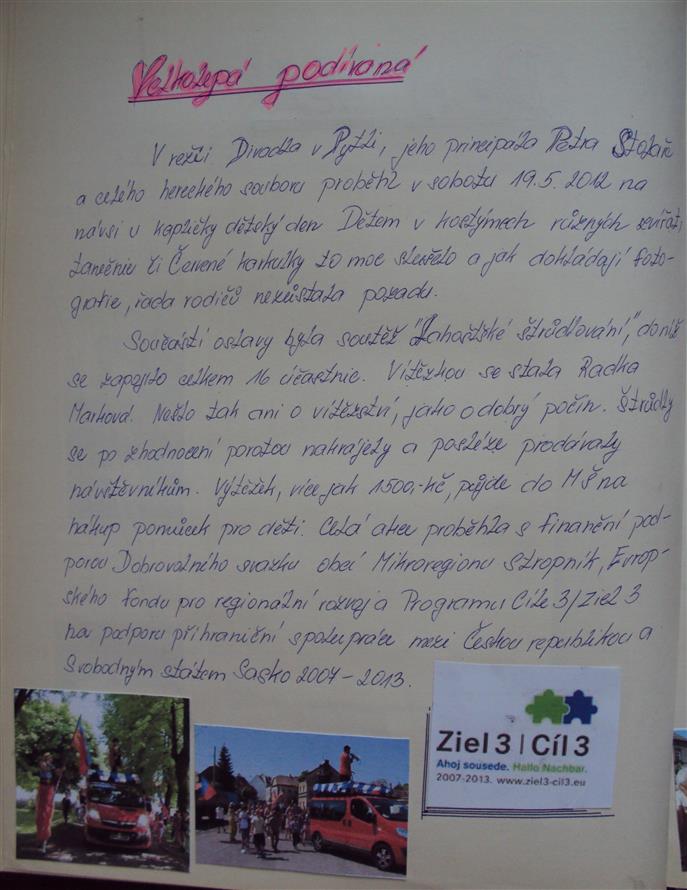 Velkolepá podívaná
V režii Divadla v Pytli, jeho principála Petra Stolaře
a celého hereckého souboru proběhl v sobotu 19.5.2012 na
návsi u kapličky dětský den. Dětem v kostýmech různých zvířat,
tanečnic či Červené karkulky to moc slušelo a jak dokládají foto-
grafie, řada rodičů nezůstala pozadu.
Součástí oslavy byla soutěž "Lahošťské štrůdlování", do níž
se zapojilo celkem 16 účastnic. Vítězkou se stala Radka
Marková. Nešlo tak ani o vítězství, jako o dobrý počin. Štrůdly
se po zhodnocení porotou nakrájely a posléze prodávaly
návštěvníkům. Výtěžek, více jak 1500,-kč, půjde do MŠ na
nákup pomůcek pro děti. Celá akce proběhla s finanční pod-
porou Dobrovolného svazku obcí Mikroregionu Stropník, Evrop-
ského fondu pro regionální rozvoj a Programu Cíle 3/Ziel 3
na podporu příhraniční spolupráce mezi Českou republikou a
Svobodným státem Sasko 2007-2013.
Ziel 3 | Cíl 3
Ahoj sousede. Hallo Nachbar.
2007-2013. www.ziel3-cil3.eu